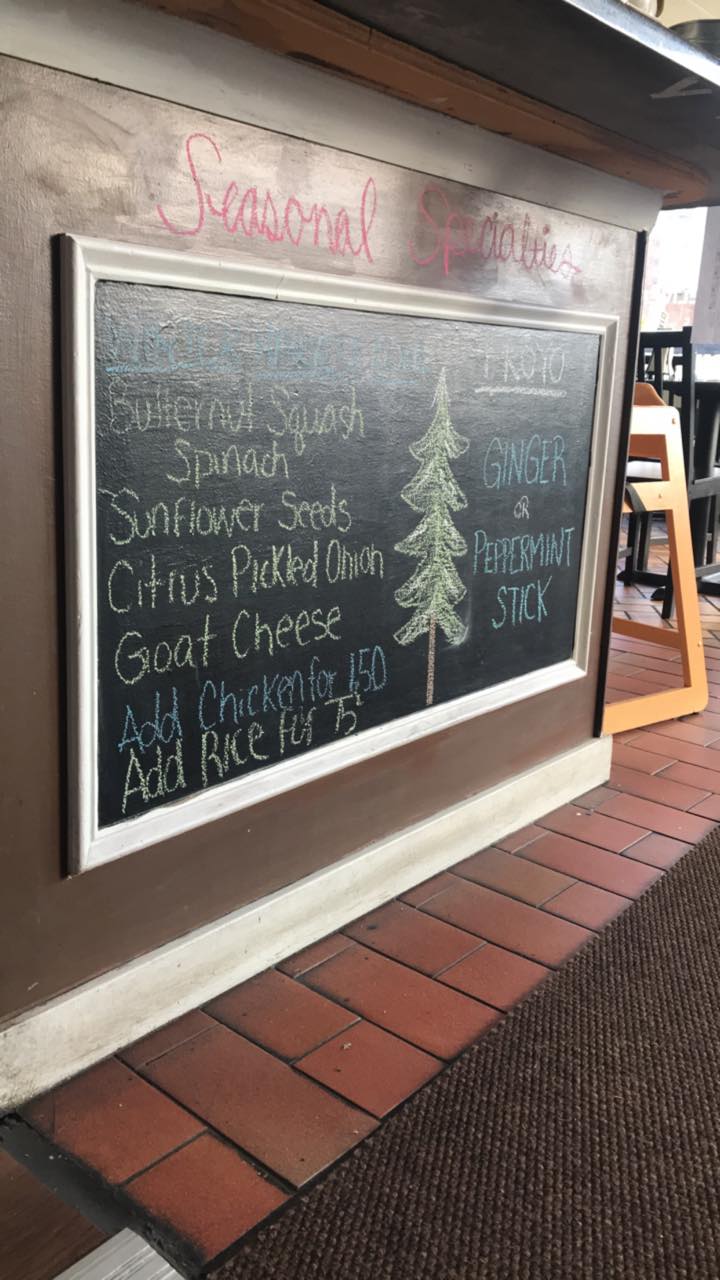 Seasonal Specialties
Butternut Squash
Spinach
Sunflower Seeds
Citrus Pickled Onion
Goat Cheese
Add Chicken for 1.50
Add Rice For 75¢
FROYO
GINGER
OR
PEPPERMINT
STICK